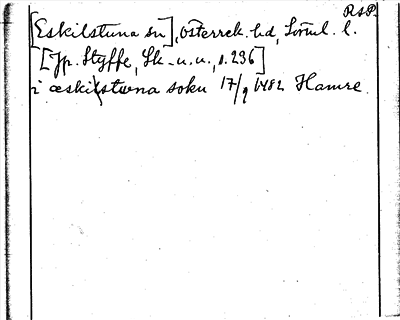 R &P.
[Eskilstuna sn], Österrek. hd, Sörml. l.
[Jp. Styffe, Sk. u. u., s. 236]
i æskilstwna soku 17/9 1482 Hamre.